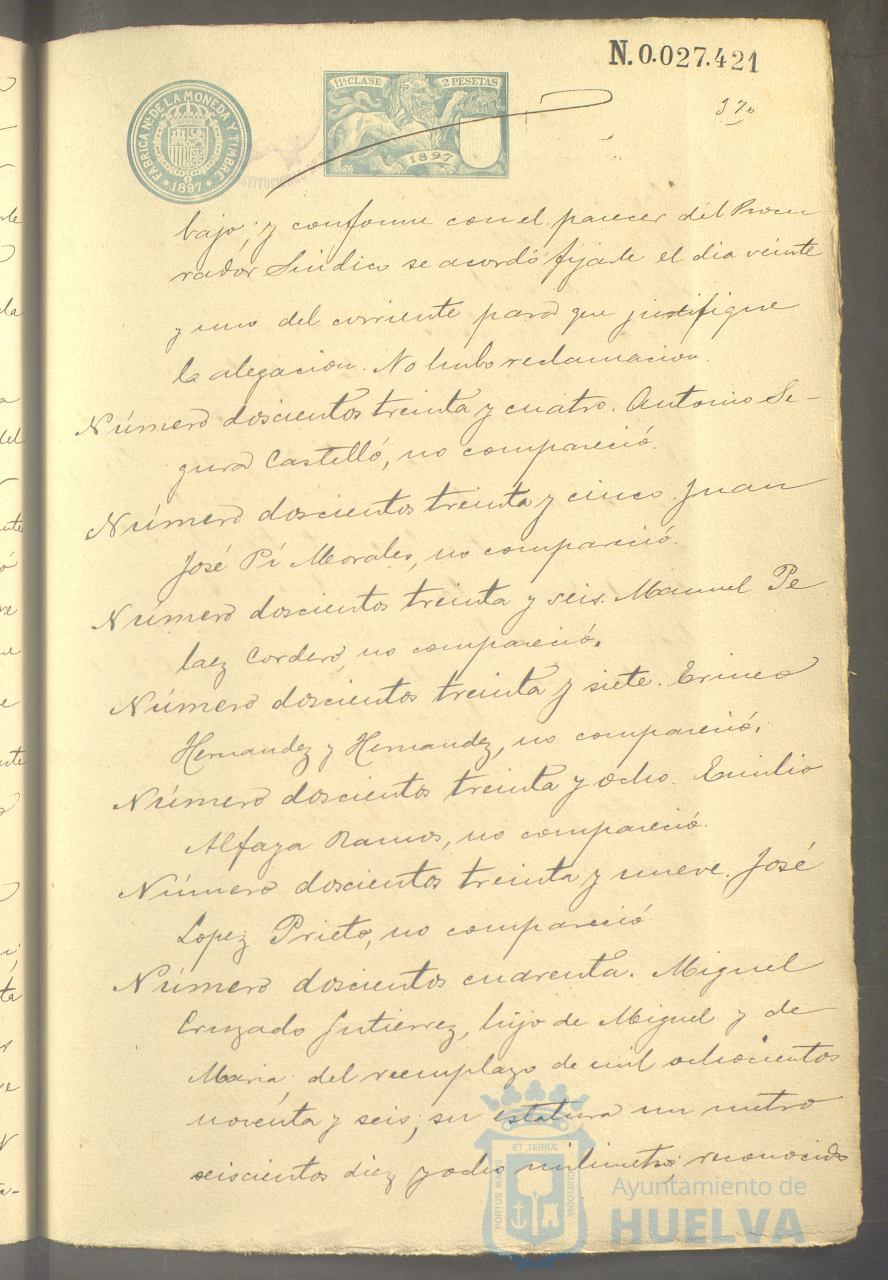 N. 0.027.421
11ª CLASE 2 PESETAS
FABRICA Nᴸ DE LA MONEDA Y TIMBRE
1897
1897
37
bajo; y conforme con el parecer del Procu
rador Sindico se acordó fijarle el dia veinte
y uno del corriente para que justifique
la alegacion. No hubo reclamacion.
Número doscientos treinta y cuatro. Antonio Se-
gura Castelló, no compareció.
Número doscientos treinta y cinco. Juan
José Pí Morales, no compareció.
Número doscientos treinta y seis. Manuel Pe
laez Cordero, no compareció.
Número doscientos treinta y siete. Erineo
Hernandez y Hernandez, no compareció.
Número doscientos treinta y ocho. Emilio
Alfaya Ramos, no compareció.
Número doscientos treinta y nueve. José
Lopez Prieto, no compareció
Número doscientos cuarenta. Miguel
Cruzado Gutierrez, hijo de Miguel y de
Maria del reemplazo de mil ochocientos
noventa y seis; su estatura un metro
seiscientos diez y ocho milimetros; reconocido
PORTUS MARIS ET TERRÆ CUSTODIA
Ayuntamiento de
HUELVA